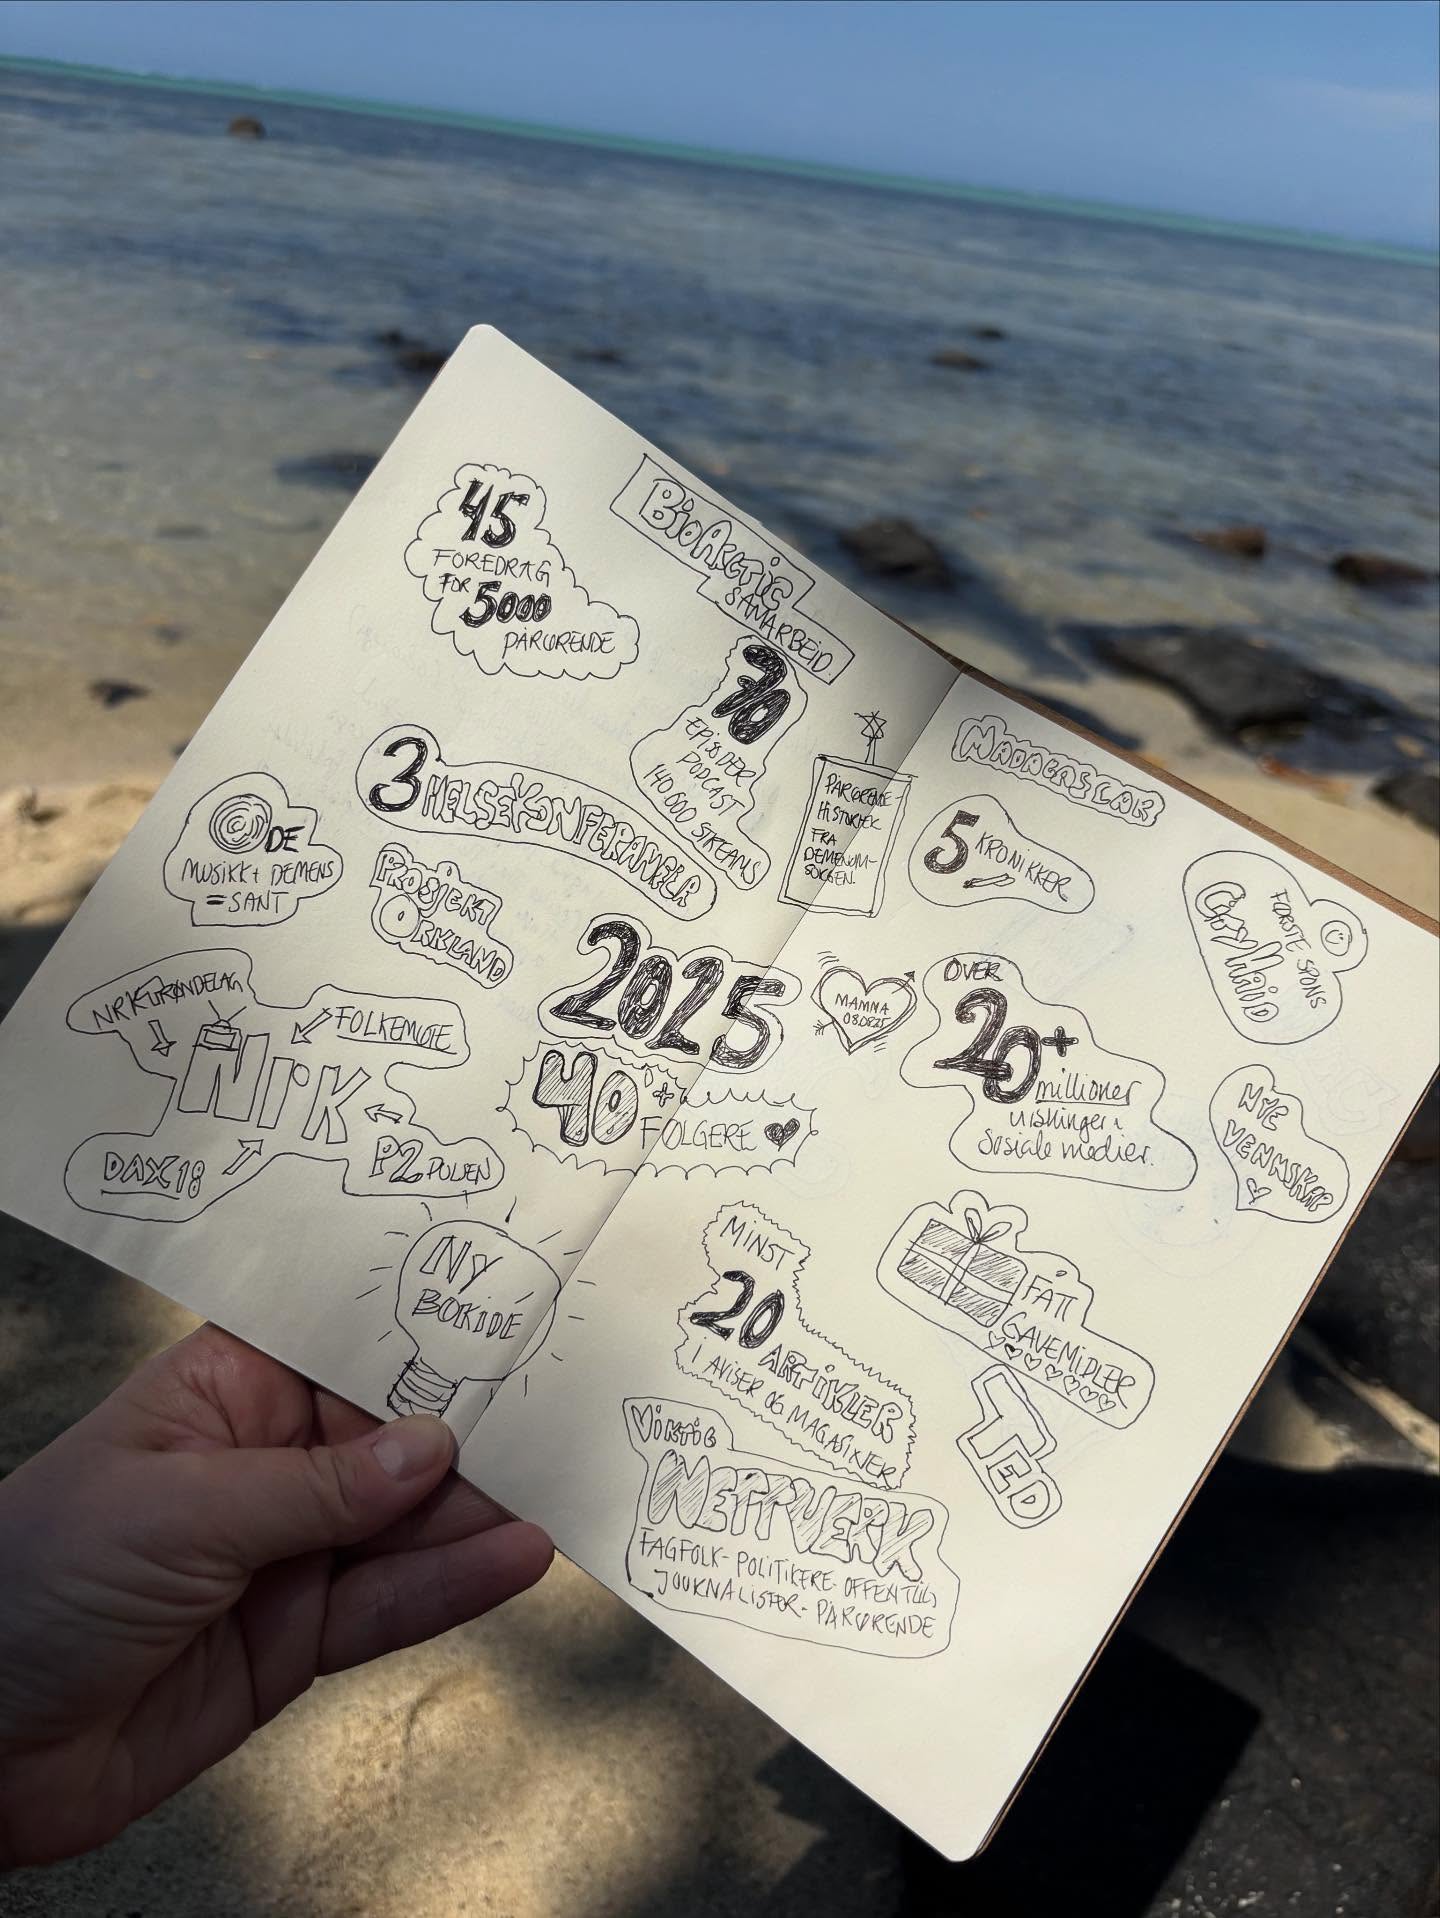 45
FOREDRAG
FOR 5000
PÅRØRENDE
BioArctic
SAMARBEID
70
EPISODER
PODCAST
140 000 STREAMS
3 HELSEKONFERANSER
DE
MUSIKK + DEMENS
= SANT
PROSJEKT
ORKLAND
PÅRØRENDE-
HISTORIER
FRA
DEMENOM-
SORGEN.
MADAGASCAR
5 KRONIKKER
FØRSTE SPONS
2025
40'+
FØLGERE
MAMMA
OVER
20+
millioner
visninger i
Sosiale medier.
NYE
VENNSKAP
NRK TRØNDELAG
FOLKEMØTE
NRK
DAX18
P2 PULSEN
NY
BOKIDÉ
MINST
20 ARTIKLER
I AVISER OG MAGASINER
FÅTT
GAVEMIDLER
TED
VIKTIG
NETTVERK
FAGFOLK - POLITIKERE - OFFENTLIG
JOURNALISTER - PÅRØRENDE